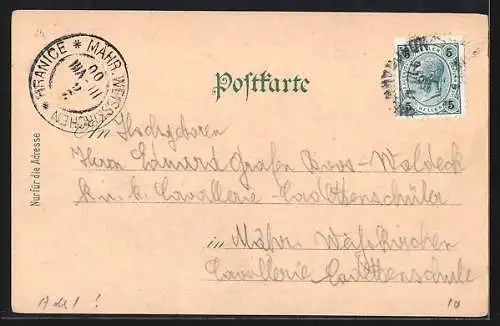 HRANICE * MÄHR. WEISSKIRCHEN *
Postkarte
5 5
5 5
Nur für die Adresse
An Hochgeboren
Herrn Eduard Grafen Boos-Waldeck
k. u. k. Cavallerie-Cadettenschüler
in Mähr. Weißkirchen
Cavallerie Cadettenschule